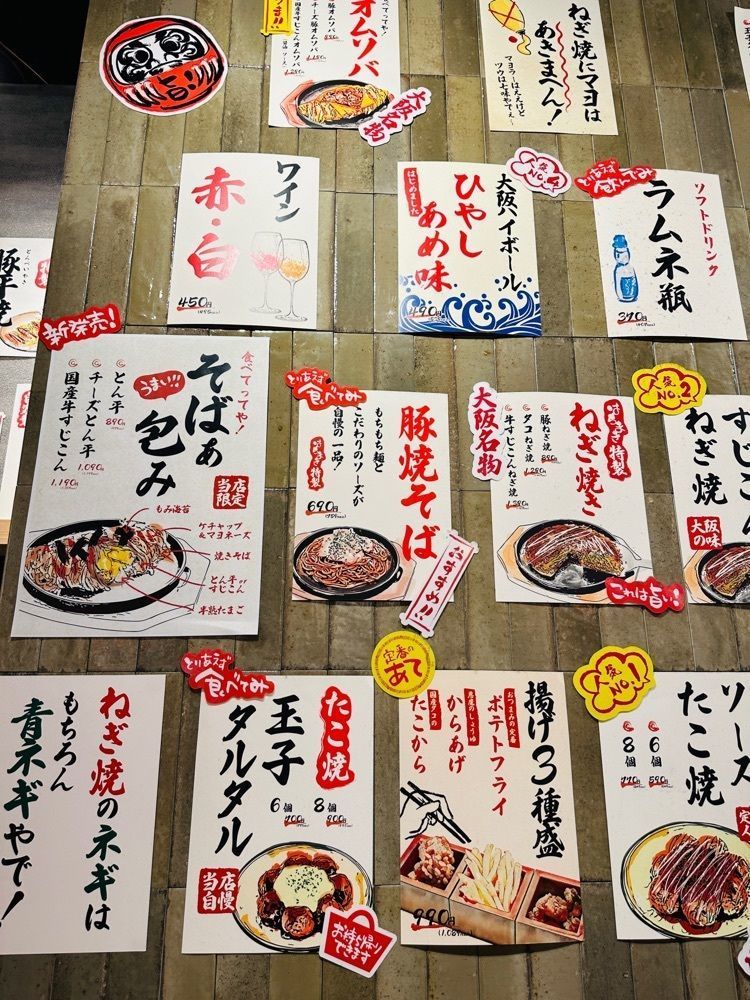 旨い
オムソバ
大阪名物
ねぎ焼にマヨは
あきまへん!
マヨラーはええけど
ツウは七味やでぇ~
ワイン
赤・白
450円
人気NO.4
大阪ハイボール
ひやし
あめ味
はじめました
490円
とりあえず
飲んでみ
ソフトドリンク
ラムネ瓶
370円
豚平焼
新発売!
食べてってや!
そばぁ
包み
うまい!!
当店
限定
とん平
890円
チーズとん平
1,090円
国産牛すじこん
1,190円
もみ海苔
ケチャップ
&マヨネーズ
焼きそば
とん平or
すじこん
半熟たまご
とりあえず
食べてみ
豚焼そば
もちもち麺と
こだわりのソースが
自慢の一品!
690円
おすすめ!!
大阪名物
ねぎ焼き
豚ねぎ焼
タコねぎ焼
牛すじこんねぎ焼
これは旨い!
人気NO.2
すじこん
ねぎ焼
大阪
の味
ねぎ焼のネギは
もちろん
青ネギやで!
とりあえず
食べてみ
たこ焼
玉子
タルタル
6個 700円
8個 900円
当店
自慢
お持ち帰り
できます
定番の
あて
揚げ3種盛
おつまみの定番
ポテトフライ
からあげ
国産タコの
たこから
990円
人気NO.1
ソース
たこ焼
6個 590円
8個 770円